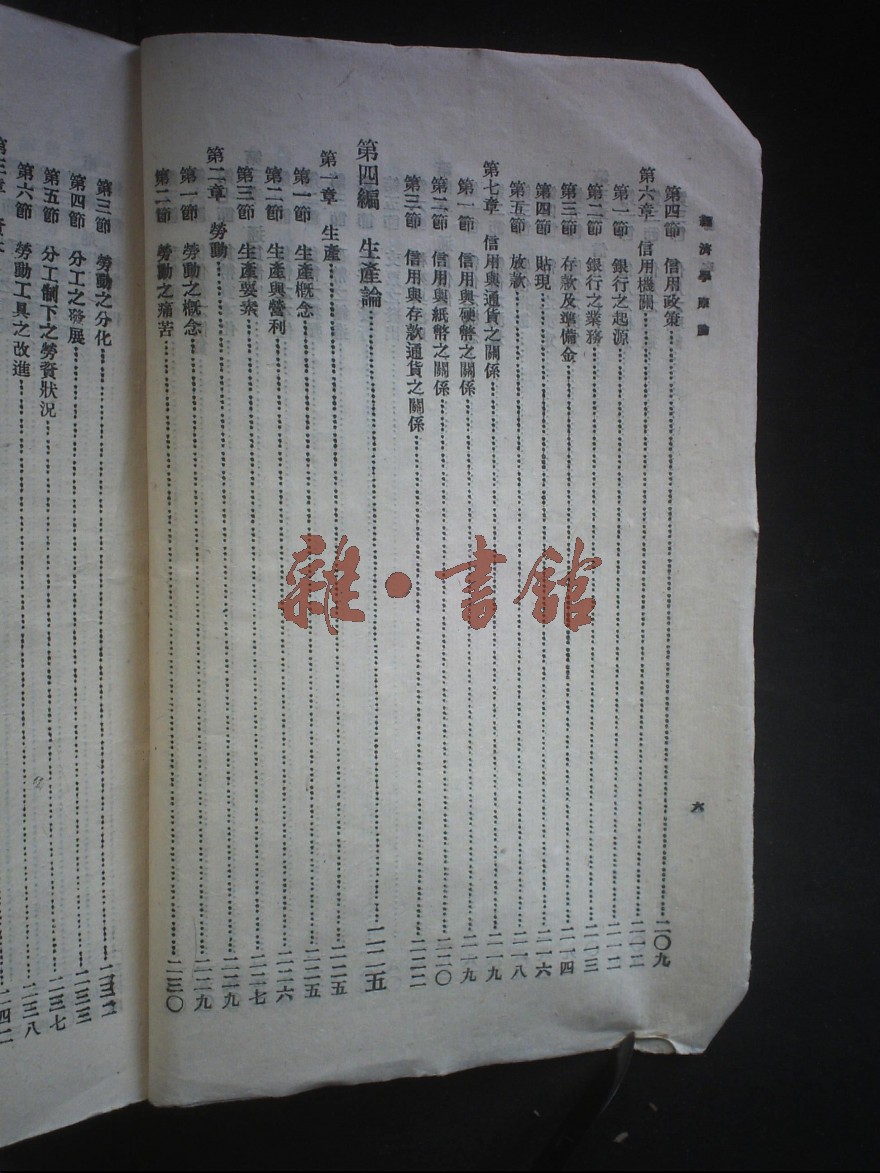 經濟學原論
六
第四節 信用政策 二〇九
第六章 信用機關 二一二
第一節 銀行之起源 二一二
第二節 銀行之業務 二一三
第三節 存款及準備金 二一四
第四節 貼現 二一六
第五節 放款 二一八
第七章 信用與通貨之關係 二一九
第一節 信用與硬幣之關係 二一九
第二節 信用與紙幣之關係 二二〇
第三節 信用與存款通貨之關係 二二二
第四編 生產論 二二五
第一章 生產 二二五
第一節 生產概念 二二五
第二節 生產與營利 二二六
第三節 生產要素 二二七
第二章 勞動 二二九
第一節 勞動之概念 二二九
第二節 勞動之痛苦 二三〇
第三節 勞動之分化
第四節 分工之發展 二三三
第五節 分工制下之勞資狀況 二三七
第六節 勞動工具之改進 二三八
二四二
雜·書館